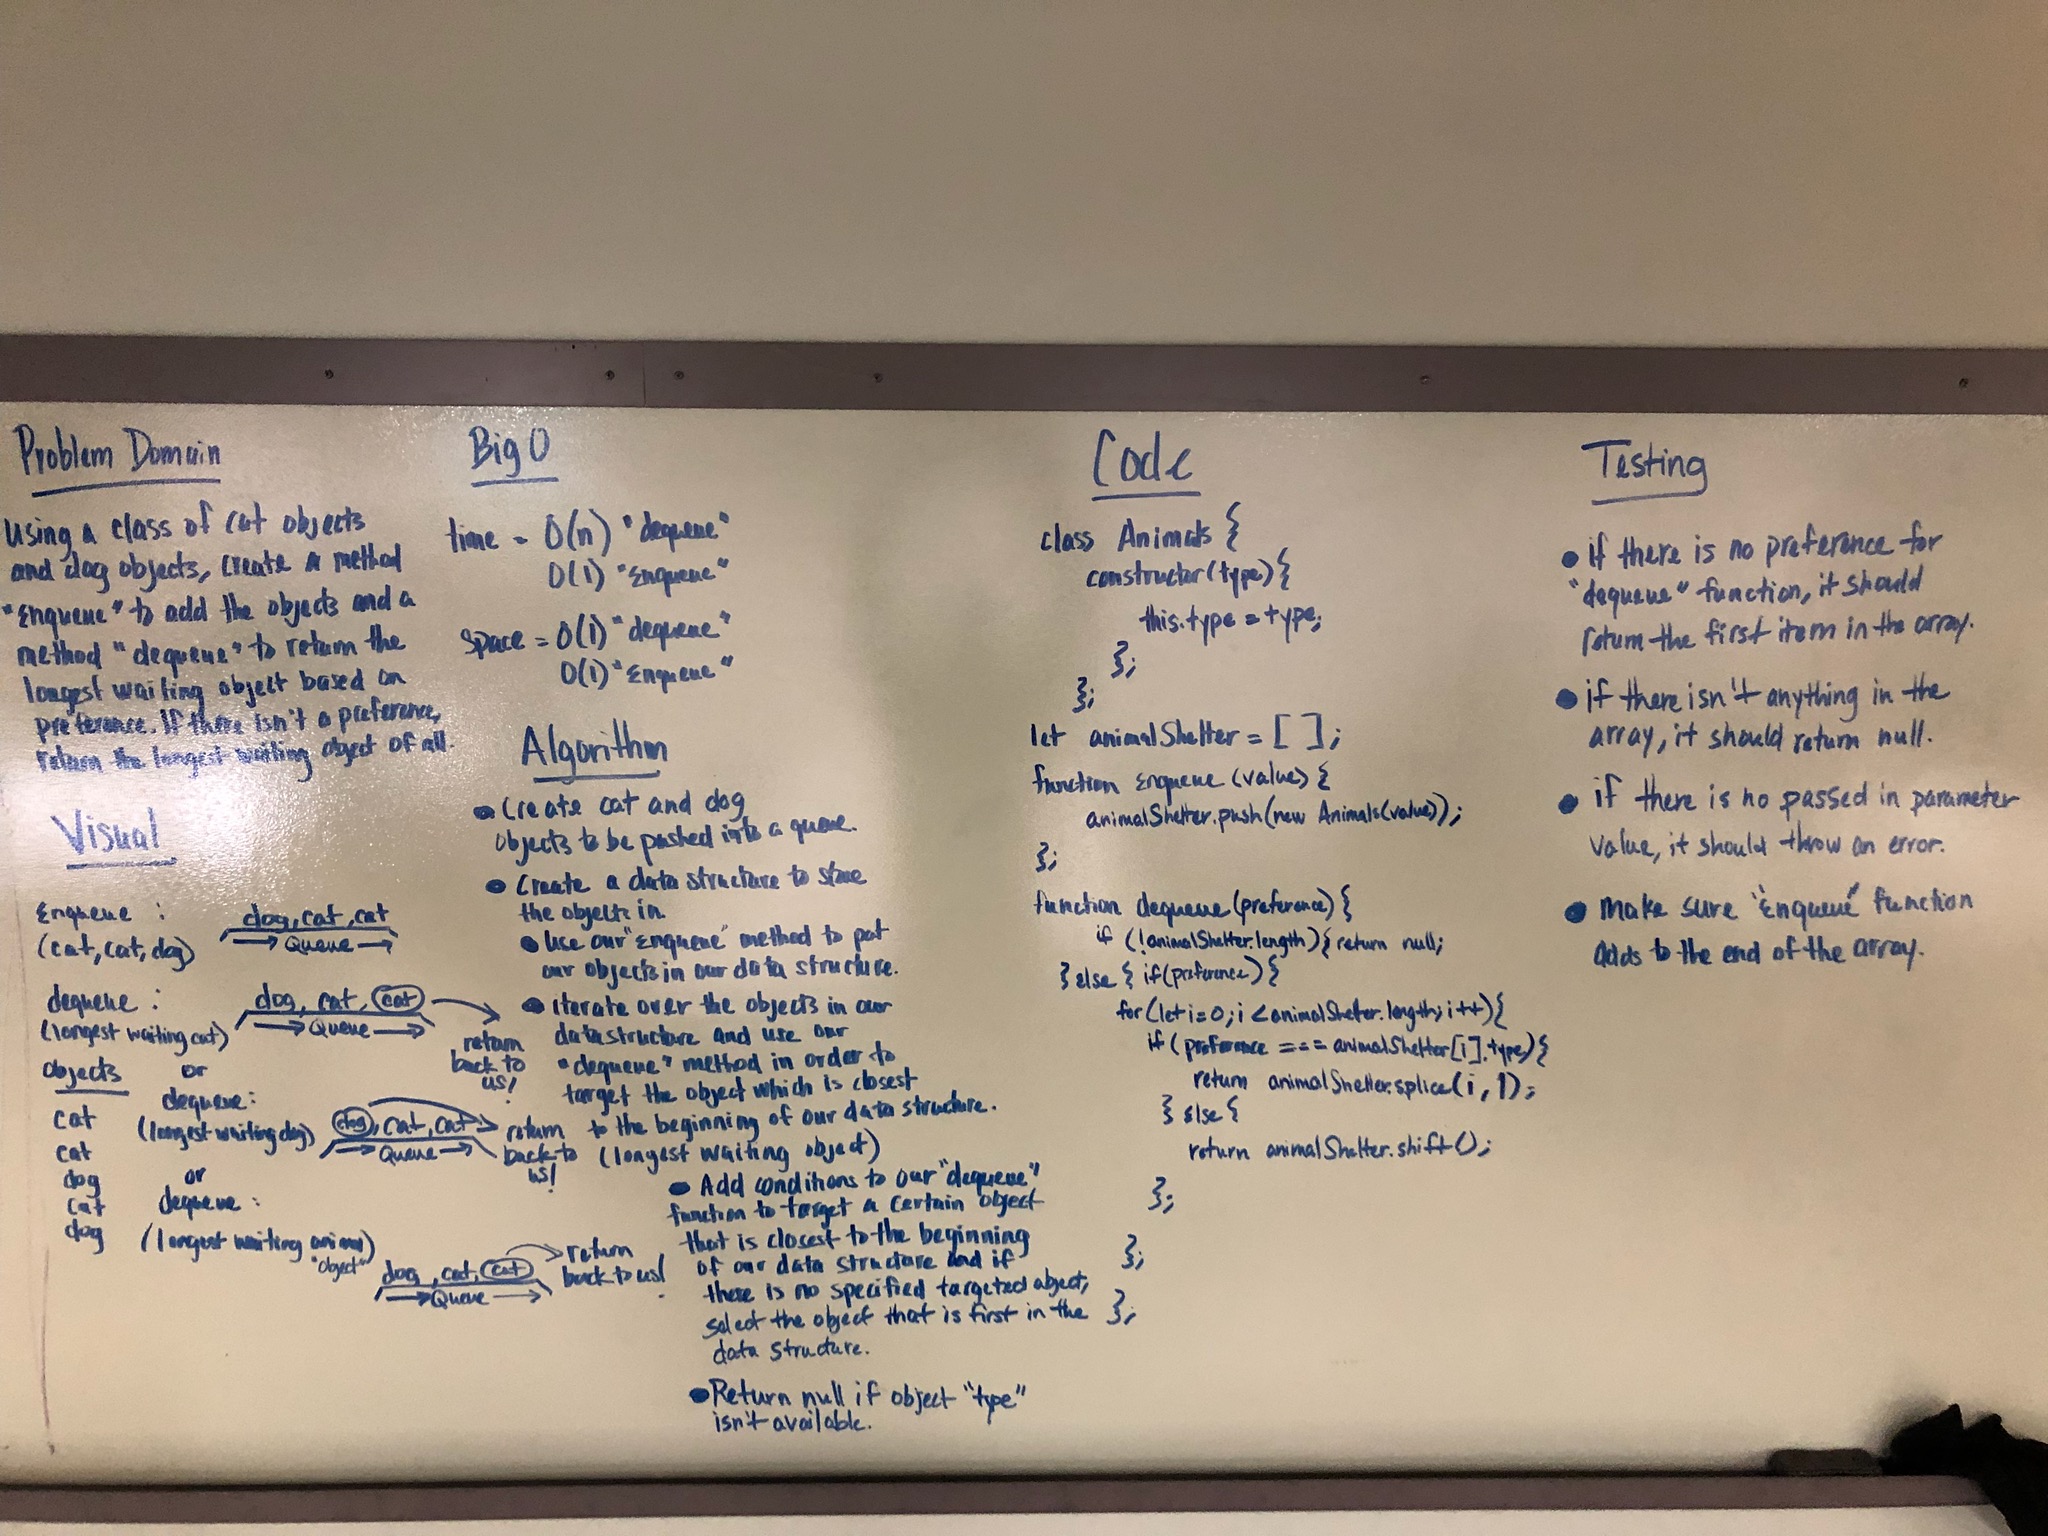 Problem Domain
Using a class of cat objects
and dog objects, create a method
"Enqueue" to add the objects and a
method "dequeue" to return the
longest waiting object based on
preference. If there isn't a preference,
return the longest waiting object of all.
Visual
Enqueue :
(cat, cat, dog)
dog, cat, cat
Queue
dequeue :
(longest waiting cat)
dog, cat, cat
Queue
return
back to
us!
or
dequeue:
(longest waiting dog)
dog, cat, cat
Queue
return
back to
us!
or
dequeue :
(longest waiting animal)
"object"
dog, cat, cat
Queue
return
back to us!
objects
cat
cat
dog
cat
dog
Big O
time = O(n) "dequeue"
O(1) "Enqueue"
space = O(1) "dequeue"
O(1) "Enqueue"
Algorithm
• Create cat and dog
objects to be pushed into a queue.
• Create a data structure to store
the objects in.
• Use our "Enqueue" method to put
our objects in our data structure.
• iterate over the objects in our
data structure and use our
"dequeue" method in order to
target the object which is closest
to the beginning of our data structure.
(longest waiting object)
• Add conditions to our "dequeue"
function to target a certain object
that is closest to the beginning
of our data structure and if
there is no specified targeted object,
select the object that is first in the
data structure.
• Return null if object "type"
isn't available.
Code
class Animals {
constructor(type){
this.type = type;
};
};
let animalShelter = [ ];
function Enqueue (value) {
animalShelter.push(new Animals(value));
};
function dequeue (preference) {
if (!animalShelter.length) { return null;
} else { if(preference) {
for (let i=0; i < animalShelter.length; i++) {
if (preference === animalShelter[i].type) {
return animalShelter.splice(i, 1);
} else {
return animalShelter.shift();
};
};
};
Testing
• if there is no preference for
"dequeue" function, it should
return the first item in the array.
• if there isn't anything in the
array, it should return null.
• if there is no passed in parameter
value, it should throw an error.
• make sure "Enqueue" function
adds to the end of the array.